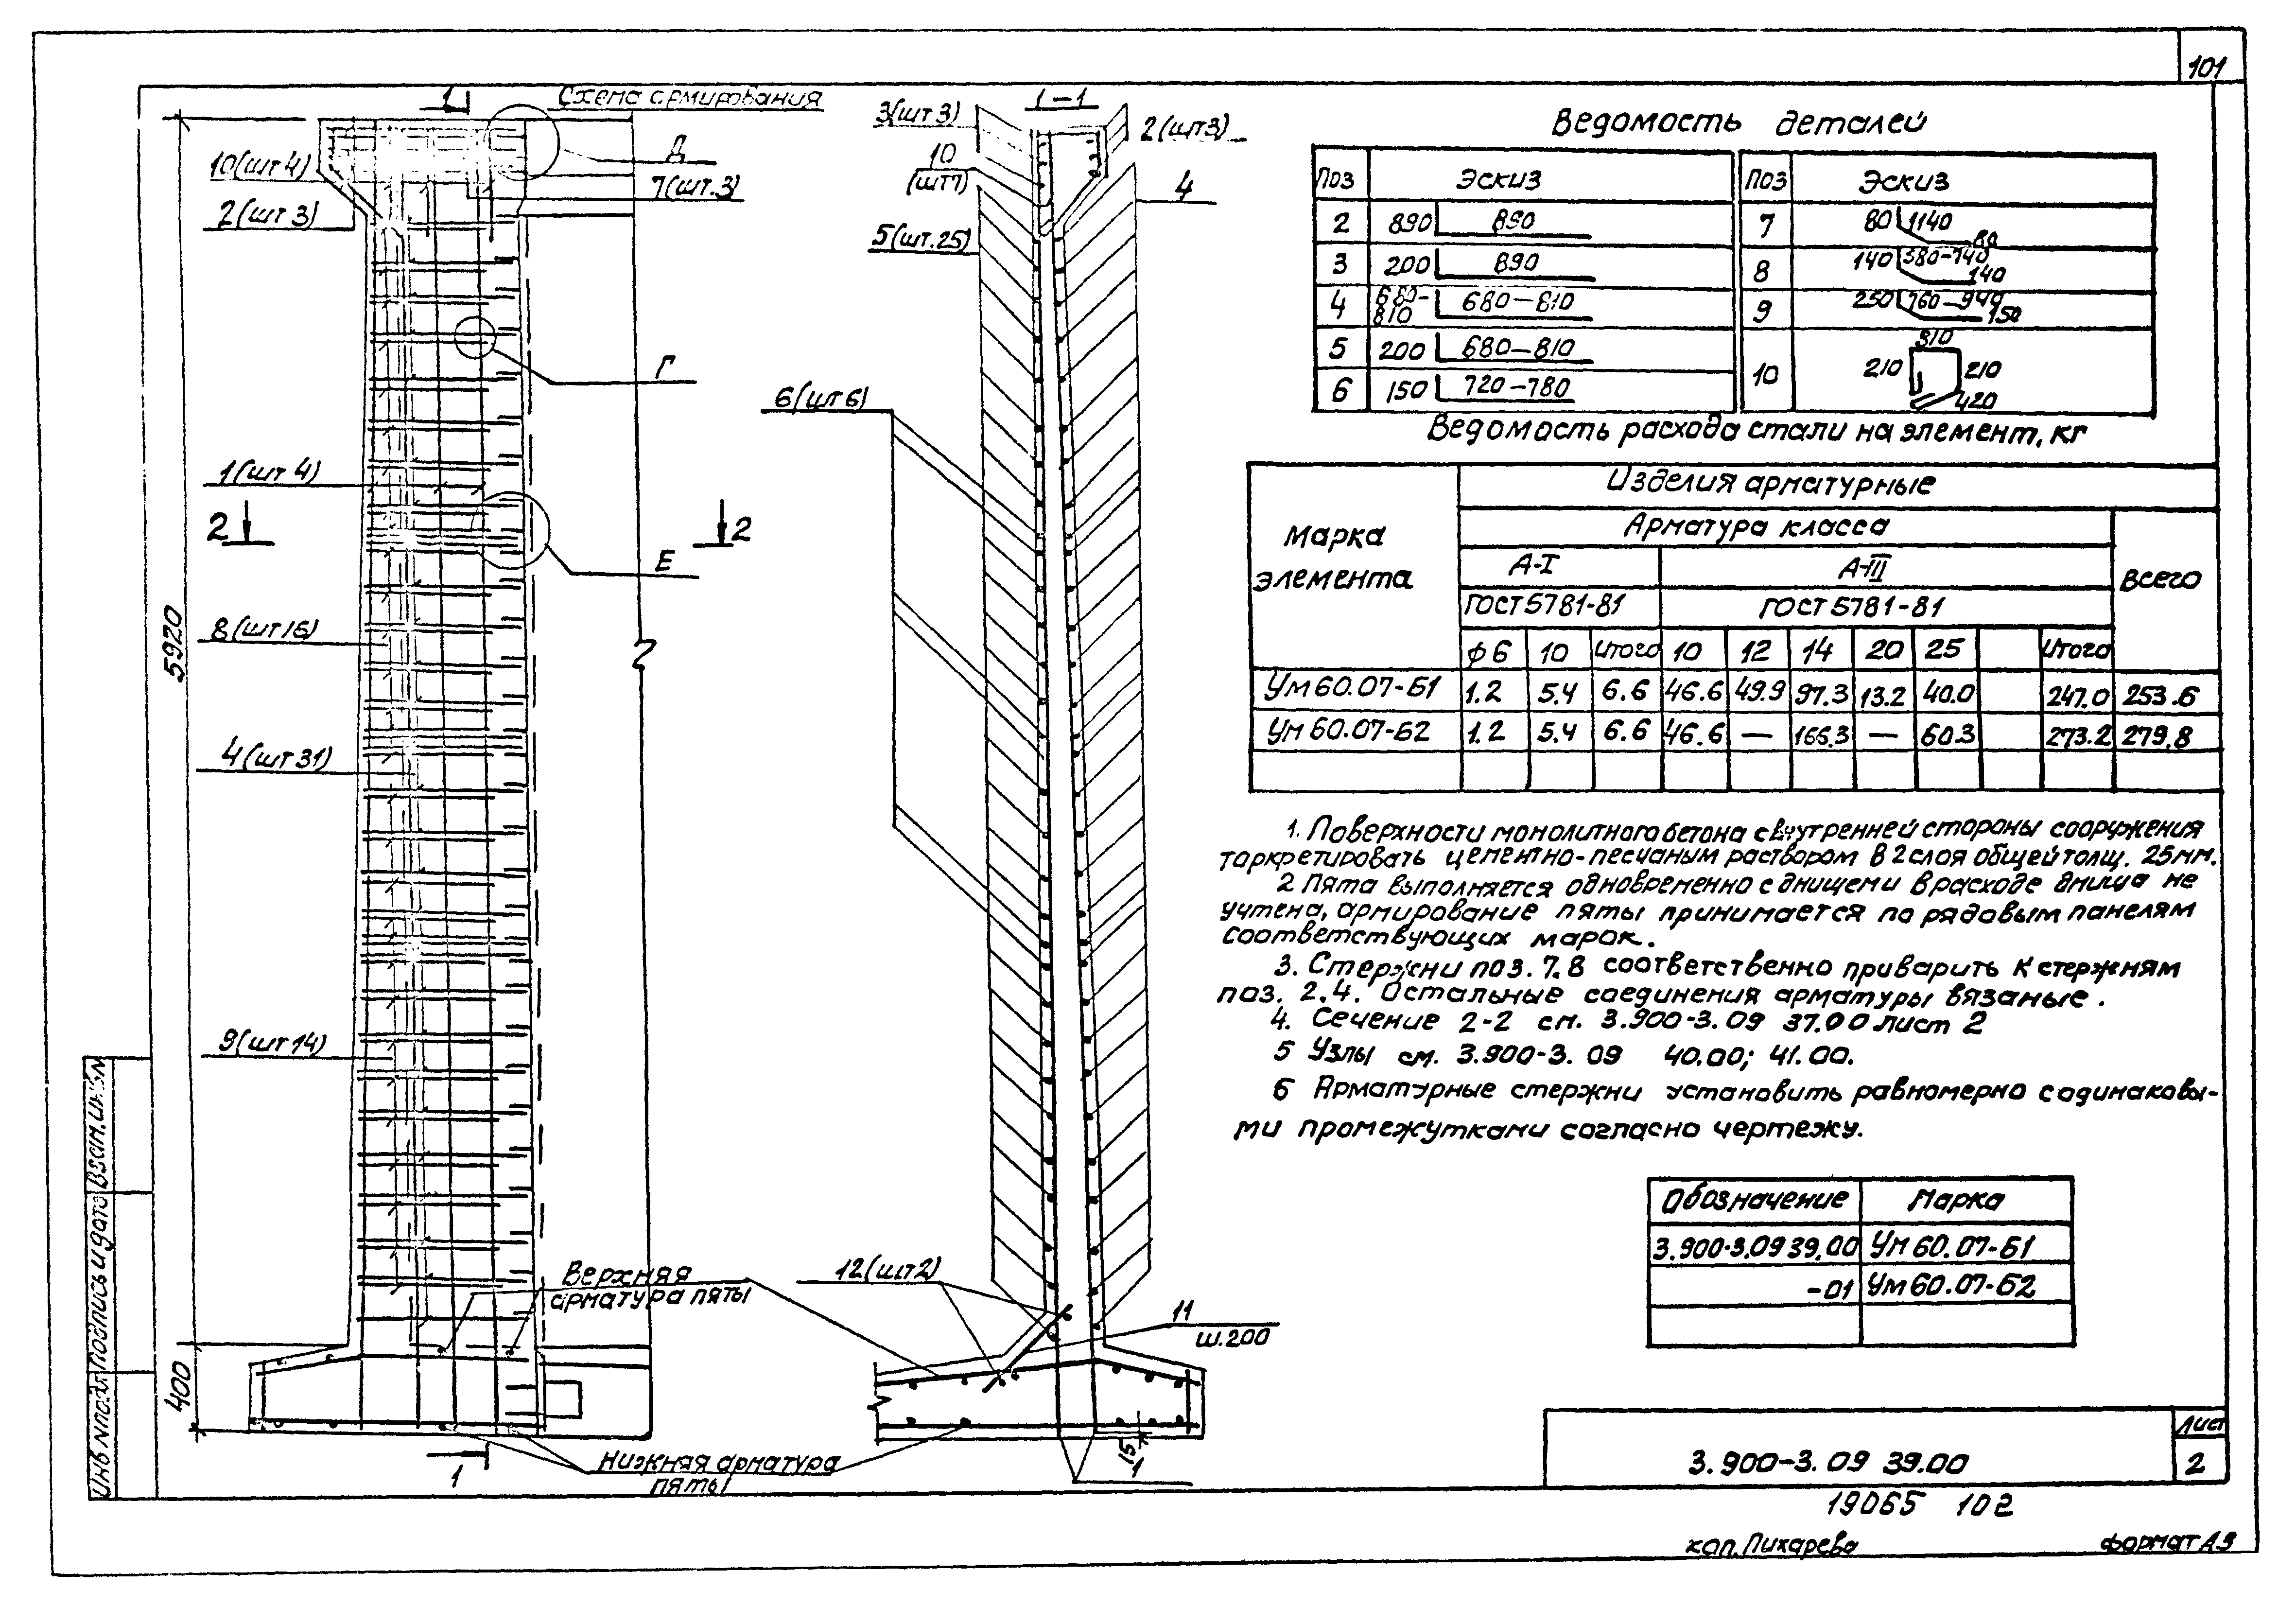 101
Схема армирования
1
Д
10(шт4)
7(шт.3)
2(шт3)
Г
1(шт4)
2 2
Е
8(шт16)
5920
4(шт31)
9(шт14)
Верхняя
арматура пяты
400
Нижняя арматура
пяты
1
1-1
3(шт3)
2(шт3)
10
4
5(шт.25)
6(шт6)
12(шт2)
11
ш.200
15
1
Ведомость деталей
Поз Эскиз Поз Эскиз
2 890 890 7 80 1140 80
3 200 890 8 140 580-740 140
4 680-810 680-810 9 250 760-940 150
5 200 680-810 10 310 210 210 420
6 150 720-780
Ведомость расхода стали на элемент, кг
Марка элемента Изделия арматурные
Арматура класса Всего
А-I А-III
ГОСТ5781-81 ГОСТ5781-81
ф6 10 Итого 10 12 14 20 25 Итого
Ум60.07-Б1 1.2 5.4 6.6 46.6 49.9 97.3 13.2 40.0 247.0 253.6
Ум60.07-Б2 1.2 5.4 6.6 46.6 — 166.3 — 60.3 273.2 279.8
1. Поверхности монолитного бетона с внутренней стороны сооружения
торкретировать цементно-песчаным раствором в 2 слоя общей толщ. 25мм.
2 Пята выполняется одновременно с днищем и в расходе днища не
учтена, армирование пяты принимается по рядовым панелям
соответствующих марок.
3. Стержни поз. 7,8 соответственно приварить к стержням
поз. 2,4. Остальные соединения арматуры вязаные.
4. Сечение 2-2 см. 3.900-3.09 37.00 лист 2
5 Узлы см. 3.900-3.09 40.00; 41.00.
6 Арматурные стержни установить равномерно с одинаковы-
ми промежутками согласно чертежу.
Обозначение Марка
3.900-3.09 39.00 Ум60.07-Б1
-01 Ум60.07-Б2
3.900-3.09 39.00
Лист
2
19065 102
коп. Пихарева формат А3
Инв № подл Подпись и дата Взам. инв №